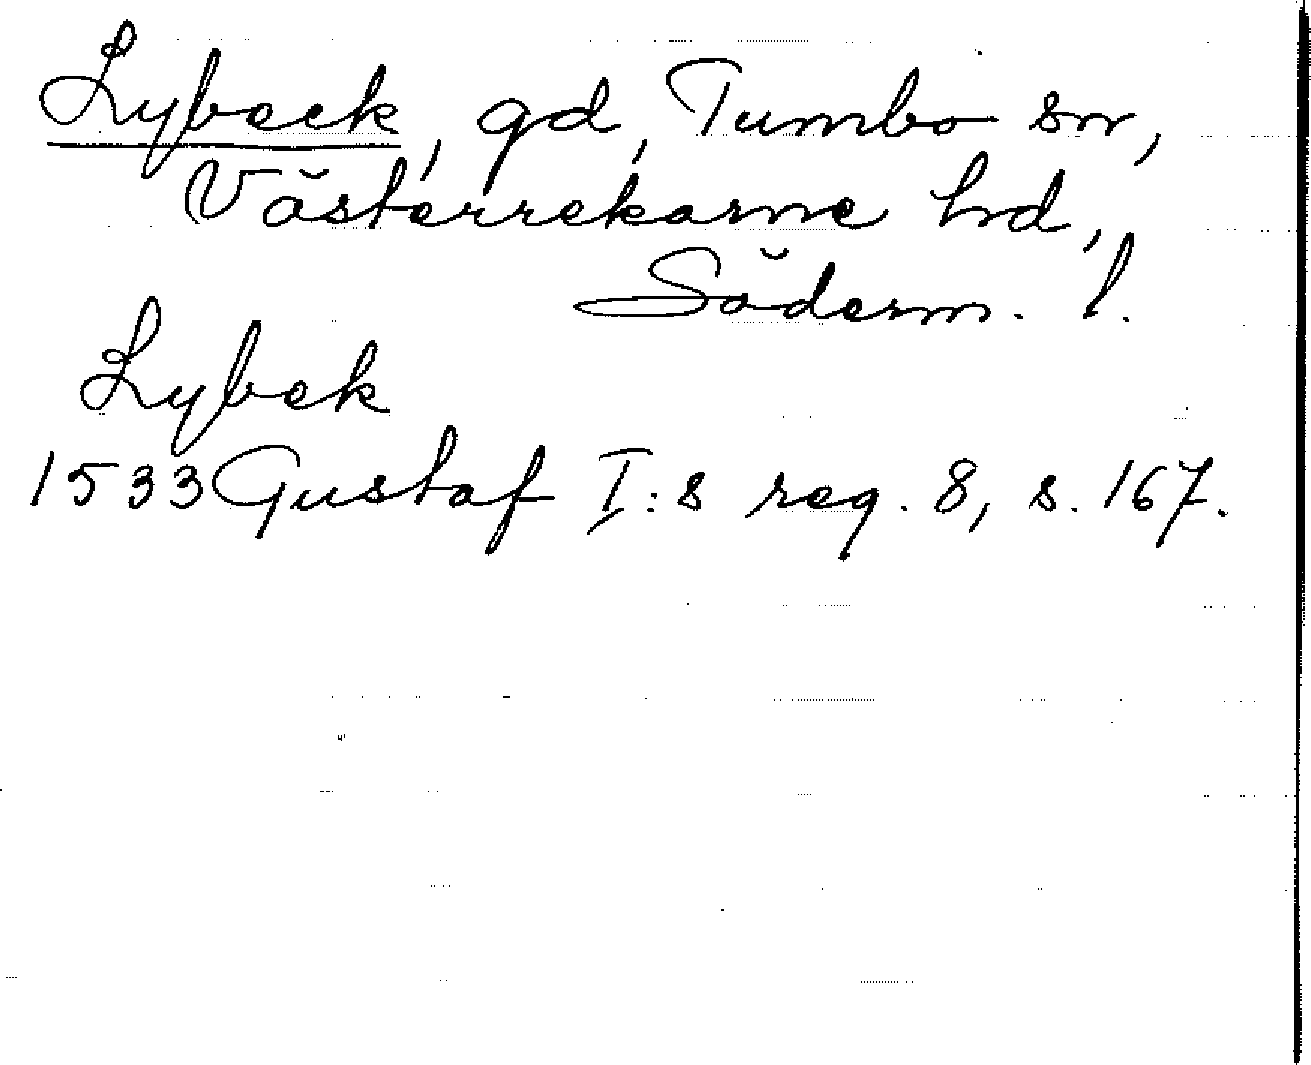 Lybeck, gd, Tumbo sn,
Västerrekarne hd,
Söderm. l.
Lybek
1533 Gustaf I:s reg. 8, s. 167.